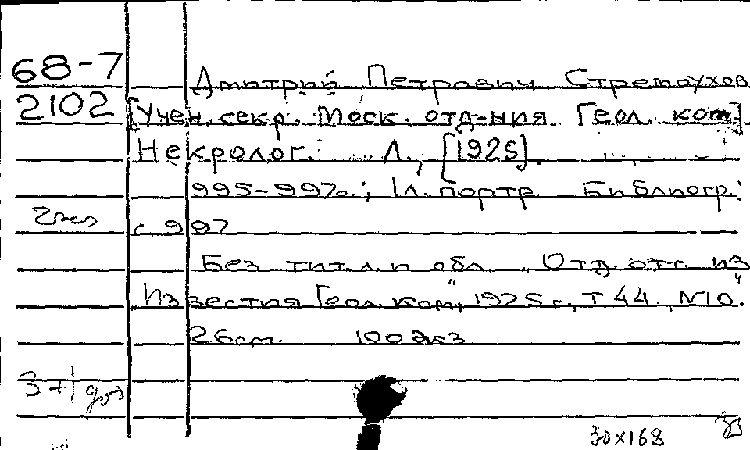 68-7 Дмитрий Петрович Стремоухов
2102 [Учен. секр. Моск. отд-ния Геол. ком.]
Некролог. Л., [1925].
995-997с.; 1л. портр. Библиогр.:
с 997
Без тит. л. и обл. Отд. отт. из
"Известия Геол. ком", 1925 г., Т 44, №10."
26см. 100 экз
3+1
30×168